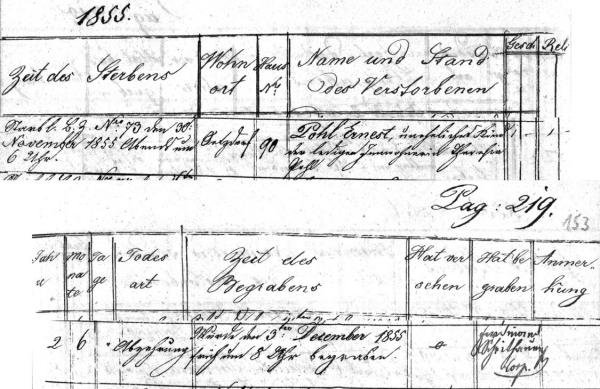 1855.
Zeit des Sterbens
Wohn
ort
Haus
Nr.
Name und Stand
des Verstorbenen
Gesch
Reli
Starb l. B. Z. Nro 73 den 30.
November 1855 Abends um
6 Uhr.
90
Pohl Ernest, unehelicher Kind
der ledigen Inwohnerin Theresia
Pohl
Pag: 219.
153
Jah
mo
nate
Ta
ge
Todes
art
Zeit des
Begrabens
Hat ver
sehen
Hat be
graben
Anmer-
kung
2
6
Abzehrung
Wurde den 3ten December 1855
früh um 8 Uhr begraben.